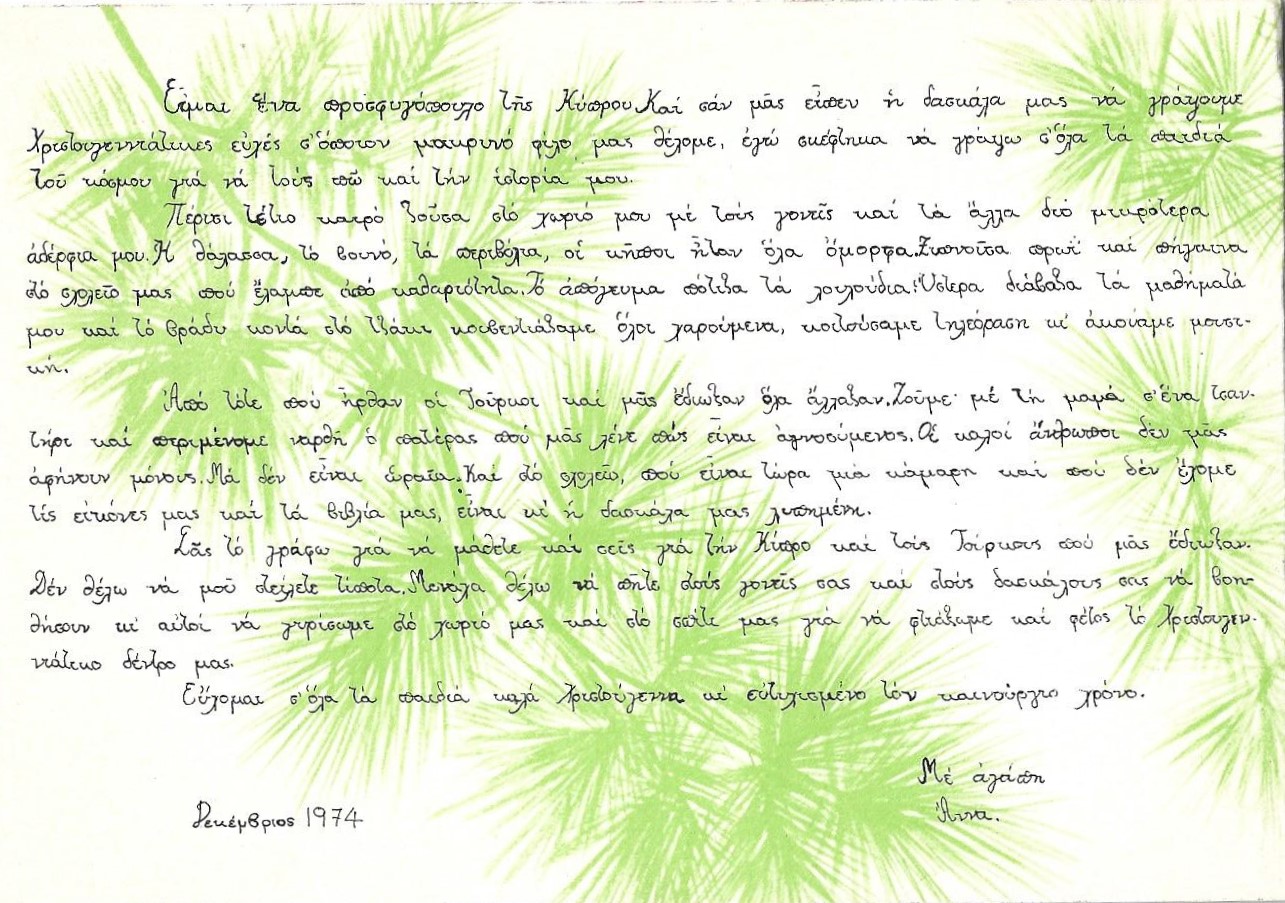 Εἶμαι ἕνα προσφυγόπουλο τῆς Κύπρου. Καί σάν μᾶς εἶπεν ἡ δασκάλα μας νά γράψουμε
Χριστουγεννιάτικες εὐχές σ' ὅποιον μακρινό φίλο μας θέλομε, ἐγώ σκέφτηκα νά γράψω σ' ὅλα τά παιδιά
τοῦ κόσμου γιά νά τούς πῶ καί τήν ἱστορία μου.
Πέρισι τέτιο καιρό ζοῦσα στό χωριό μου μέ τούς γονεῖς καί τά ἄλλα δυό μικρότερα
ἀδέρφια μου. Ἡ θάλασσα, τό βουνό, τά περιβόλια, οἱ κῆποι ἦταν ὅλα ὄμορφα. Ξυπνοῦσα πρωΐ καί πήγαινα
στό σχολεῖο μας πού ἔλαμπε ἀπό καθαριότητα. Τό ἀπόγευμα πότιζα τά λουλούδια. Ὕστερα διάβαζα τά μαθήματά
μου καί τό βράδυ κοντά στό τζάκι κουβεντιάζαμε ὅλοι χαρούμενα, κοιτούσαμε τηλεόραση κι' ἀκούαμε μουσι-
κή.
Ἀπό τότε πού ἦρθαν οἱ Τοῦρκοι καί μᾶς ἔδιωξαν ὅλα ἄλλαξαν. Ζοῦμε μέ τή μαμά σ' ἕνα τσαν-
τήρι καί πιριμένομε ναρθῆ ὁ πατέρας πού μᾶς λένε πώς εἶναι ἀγνοούμενος. Οἱ καλοί ἄνθρωποι δέν μᾶς
ἀφήνουν μόνους. Μά δέν εἶναι ὡραῖα. Καί στό σχολεῖο, πού εἶναι τώρα μιά κάμαρη καί πού δέν ἔχομε
τίς εἰκόνες μας καί τά βιβλία μας, εἶναι κι' ἡ δασκάλα μας λυπημένη.
Σᾶς τό γράφω γιά νά μάθετε καί σεῖς γιά τήν Κύπρο καί τούς Τούρκους πού μᾶς ἔδιωξαν.
Δέν θέλω νά μοῦ στείλετε τίποτα. Μονάχα θέλω νά πῆτε στούς γονεῖς σας καί στούς δασκάλους σας νά βοη-
θήσουν κι' αὐτοί νά γυρίσωμε στό χωριό μας καί στό σπίτι μας γιά νά φτιάξωμε καί φέτος τό Χριστουγεν-
νιάτικο δέντρο μας.
Εὔχομαι σ' ὅλα τά παιδιά καλά Χριστούγεννα κι' εὐτυχισμένο τόν καινούργιο χρόνο.
Μέ ἀγάπη
Ἄννα.
Δεκέμβριος 1974